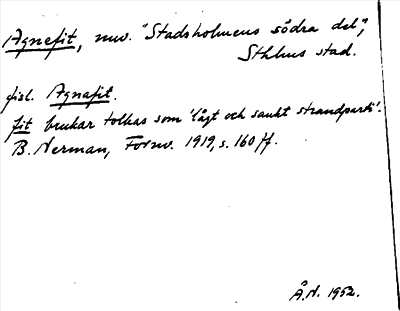 Agnefit, nuv. "Stadsholmens södra del",
Sthlms stad.
fisl. Agnafit.
fit brukar tolkas som 'lågt och sankt strandparti'.
B. Nerman, Fornv. 1919, s. 160 ff.
Å.N. 1952.